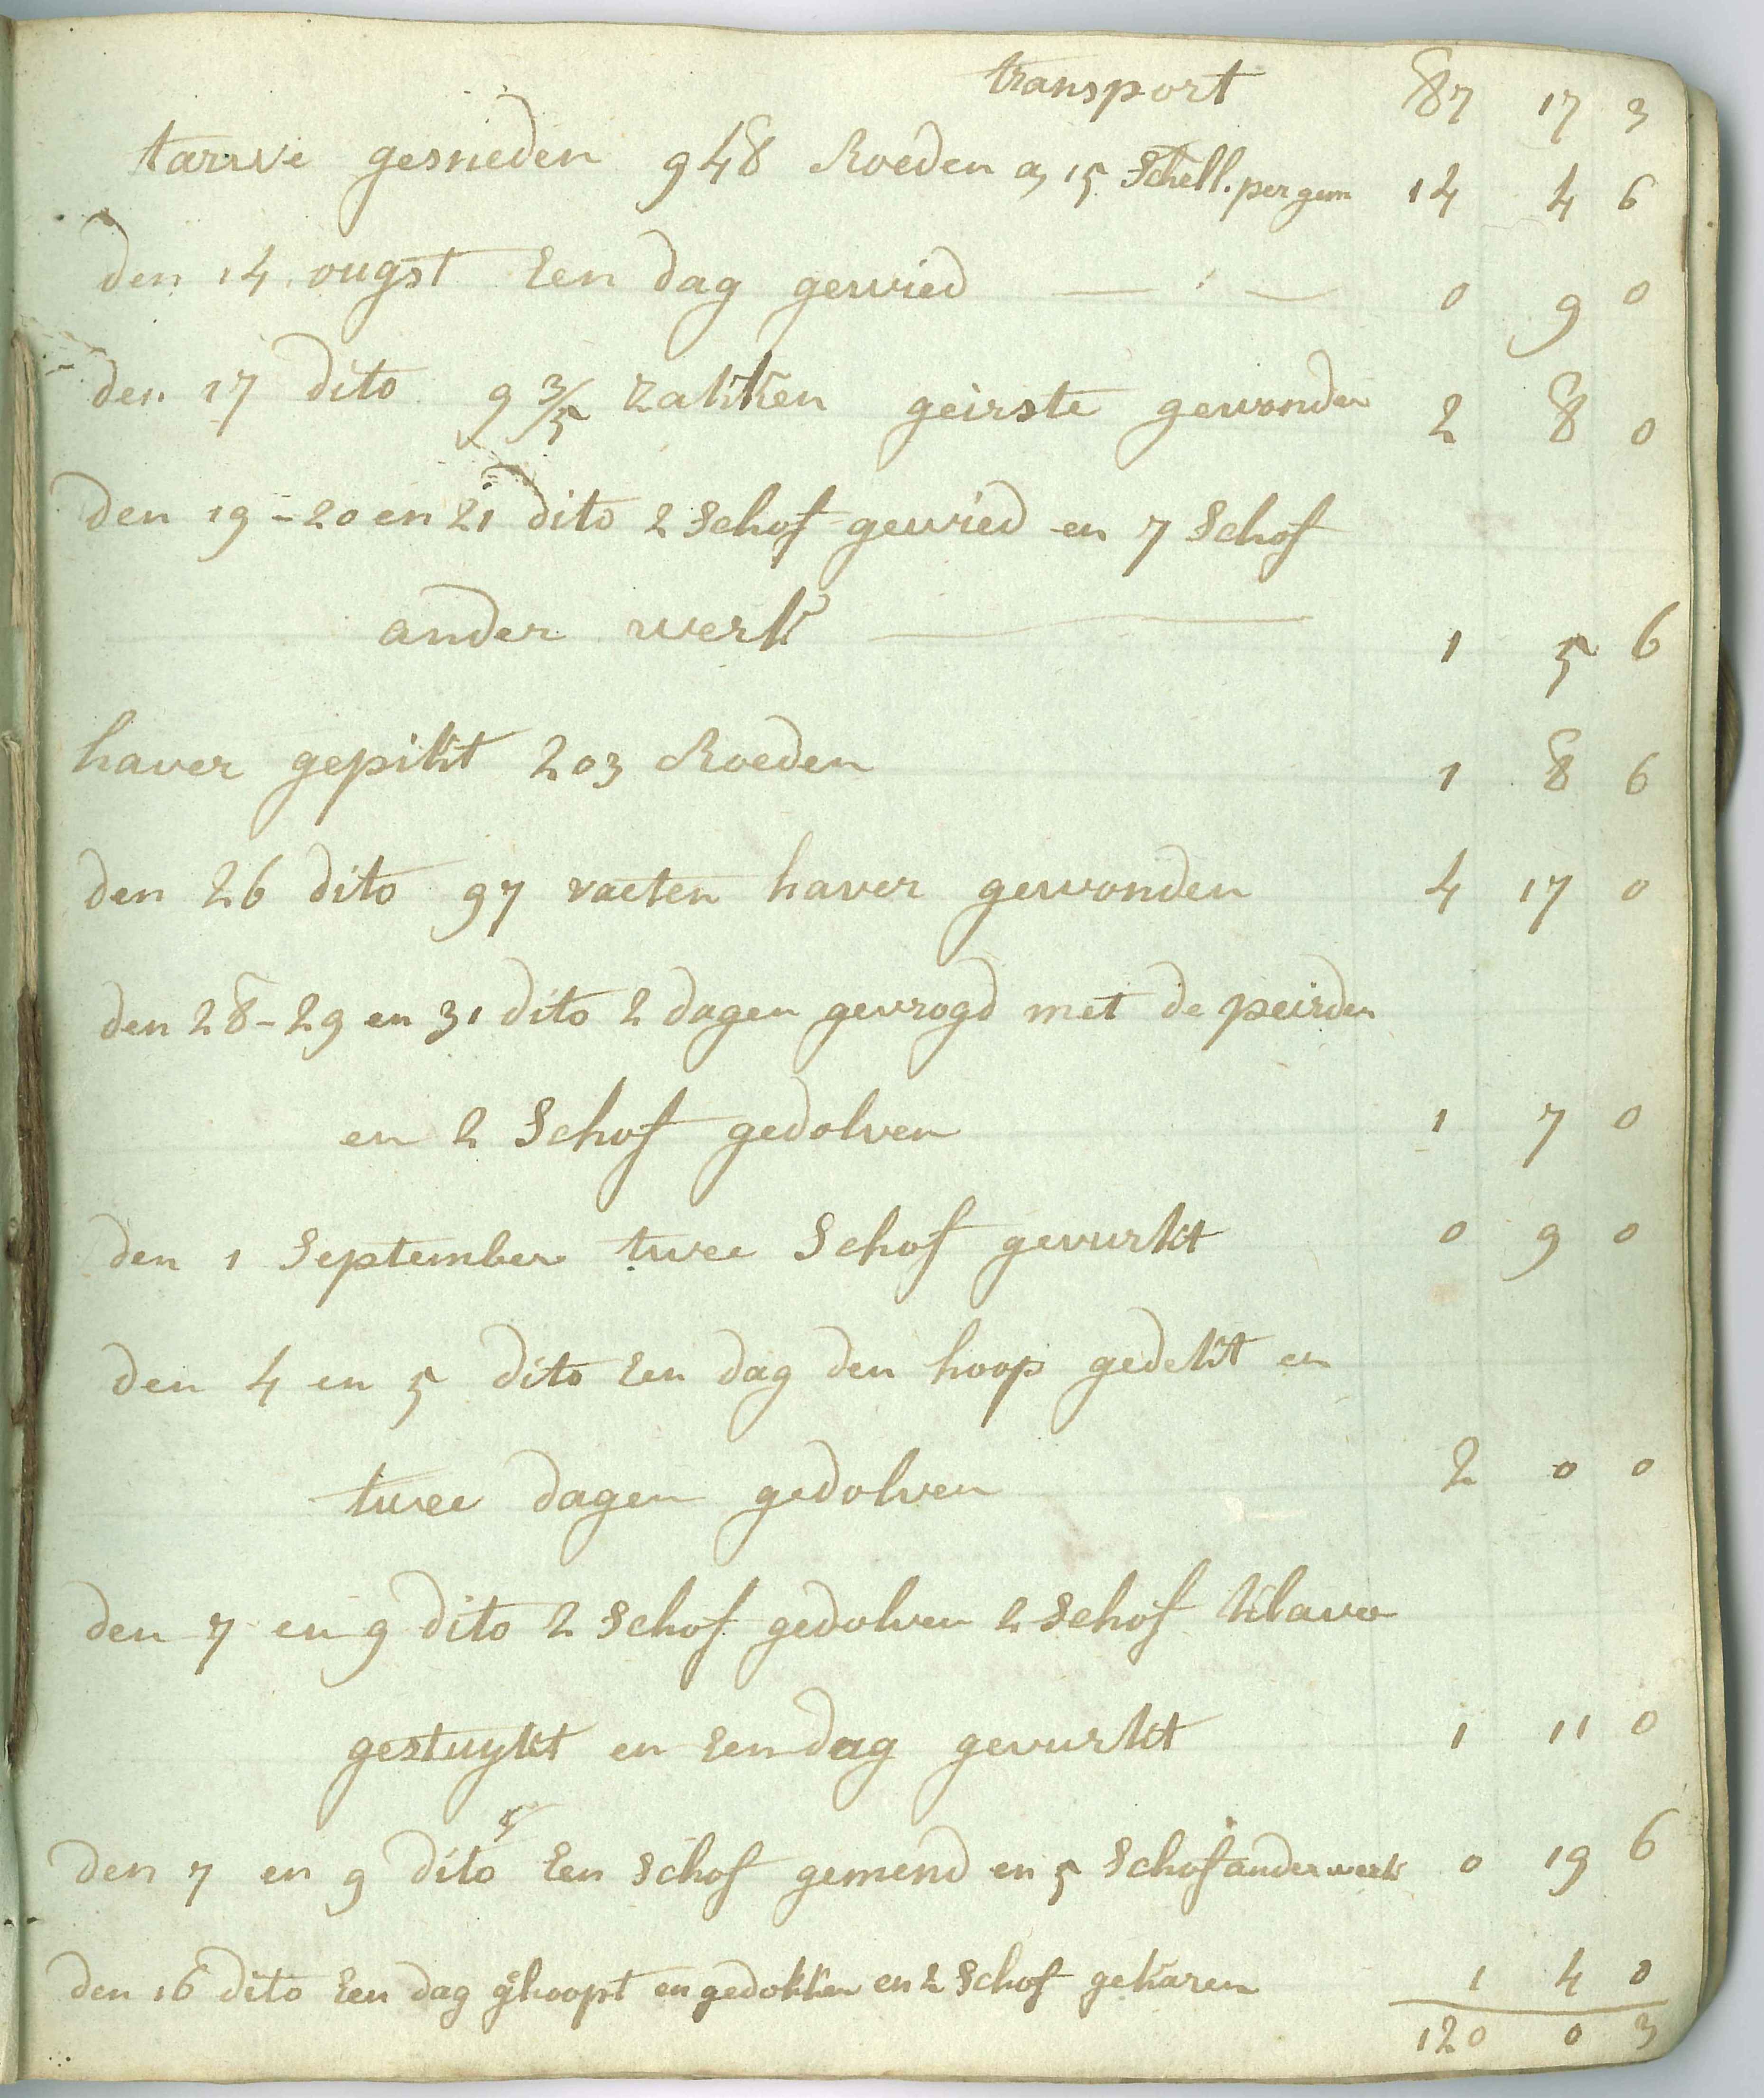 transport 87 17 3
tarwe gesneden 948 Roeden a 15 Schell. per gem 14 4 6
den 14 ougst Een dag gewied 0 9 0
den 17 dito 9 3/5 zakken geirste gewonden 2 8 0
den 19-20 en 21 dito 2 Schof gewied en 7 Schof
ander werk 1 5 6
haver gepikt 203 Roeden 1 8 6
den 26 dito 97 vaeten haver gewonden 4 17 0
den 28-29 en 31 dito 2 dagen gevrogd met de peirden
en 2 Schof gedolven 1 7 0
den 1 September twee Schof gevurkt 0 9 0
den 4 en 5 dito Een dag den hoop gedekt en
twee dagen gedolven 2 0 0
den 7 en 9 dito 2 Schof gedolven 2 Schof klaver
gestuykt en Een dag gevurkt 1 11 0
den 7 en 9 dito Een Schof gemend en 5 Schof ander werk 0 19 6
den 16 dito Een dag g'hoopt en gedokken en 2 Schof gekaren 1 4 0
120 0 3